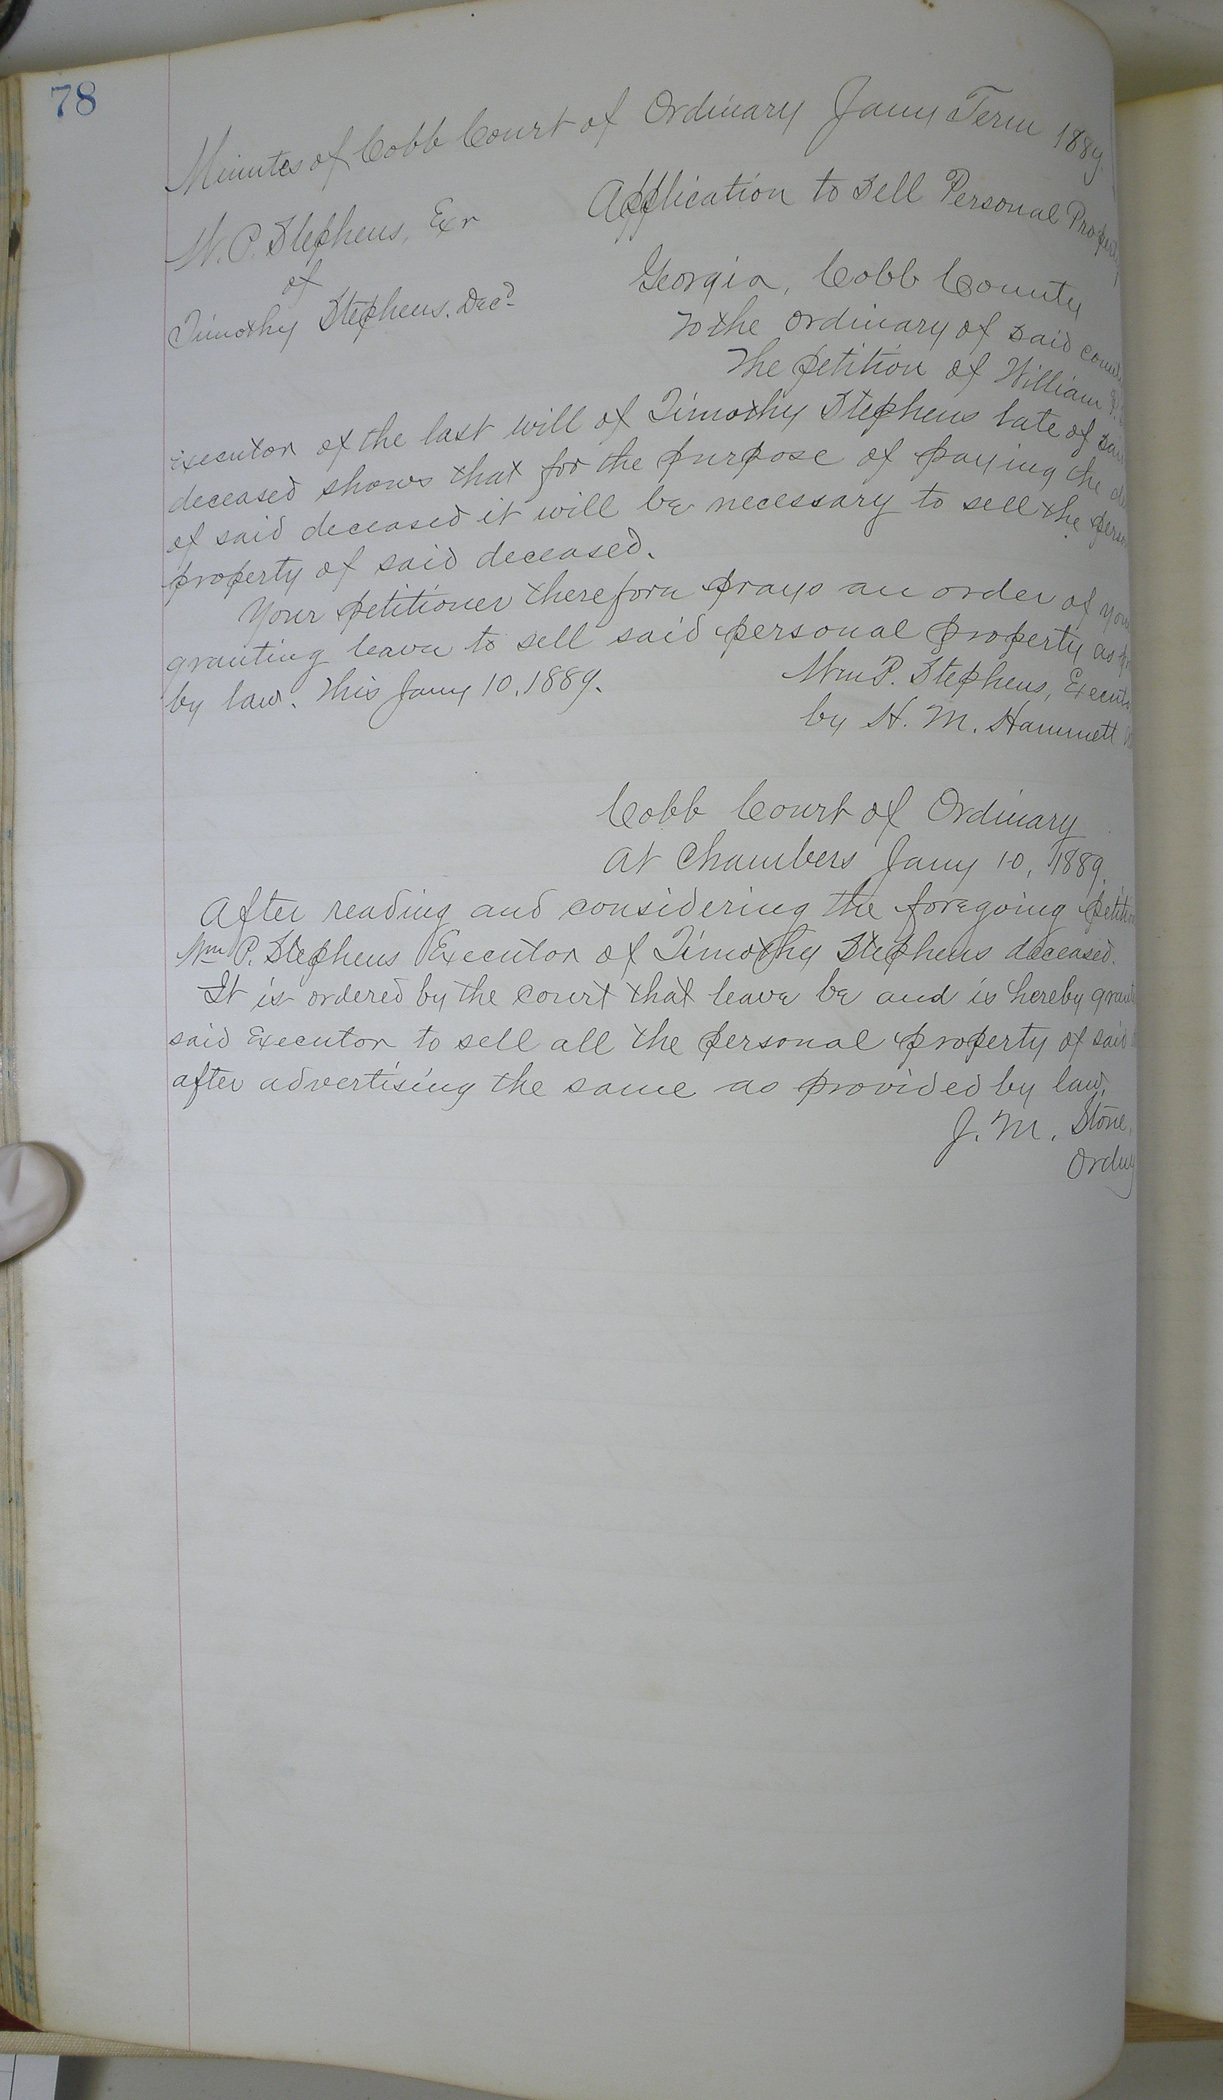 78
Minutes of Cobb Court of Ordinary Jany Term 1889
W. P. Stephens, Exr
of
Timothy Stephens, Decd
Application to Sell Personal Propert
Georgia, Cobb County
To the Ordinary of said coun
The petition of William P.
executor of the last will of Timothy Stephens late of sai
deceased shows that for the purpose of paying the de
of said deceased it will be necessary to sell the perso
property of said deceased.
Your petitioner therefore prays an order of you
granting leave to sell said personal property as
by law. This Jany 10, 1889.
Wm P. Stephens, Execut
by H. M. Hammett
Cobb Court of Ordinary
At Chambers Jany 10, 1889.
After reading and considering the foregoing petitio
Wm P. Stephens Executor of Timothy Stephens deceased.
It is ordered by the court that leave be and is hereby grant
said Executor to sell all the personal property of said
after advertising the same as provided by law.
J. M. Stone,
Ordny